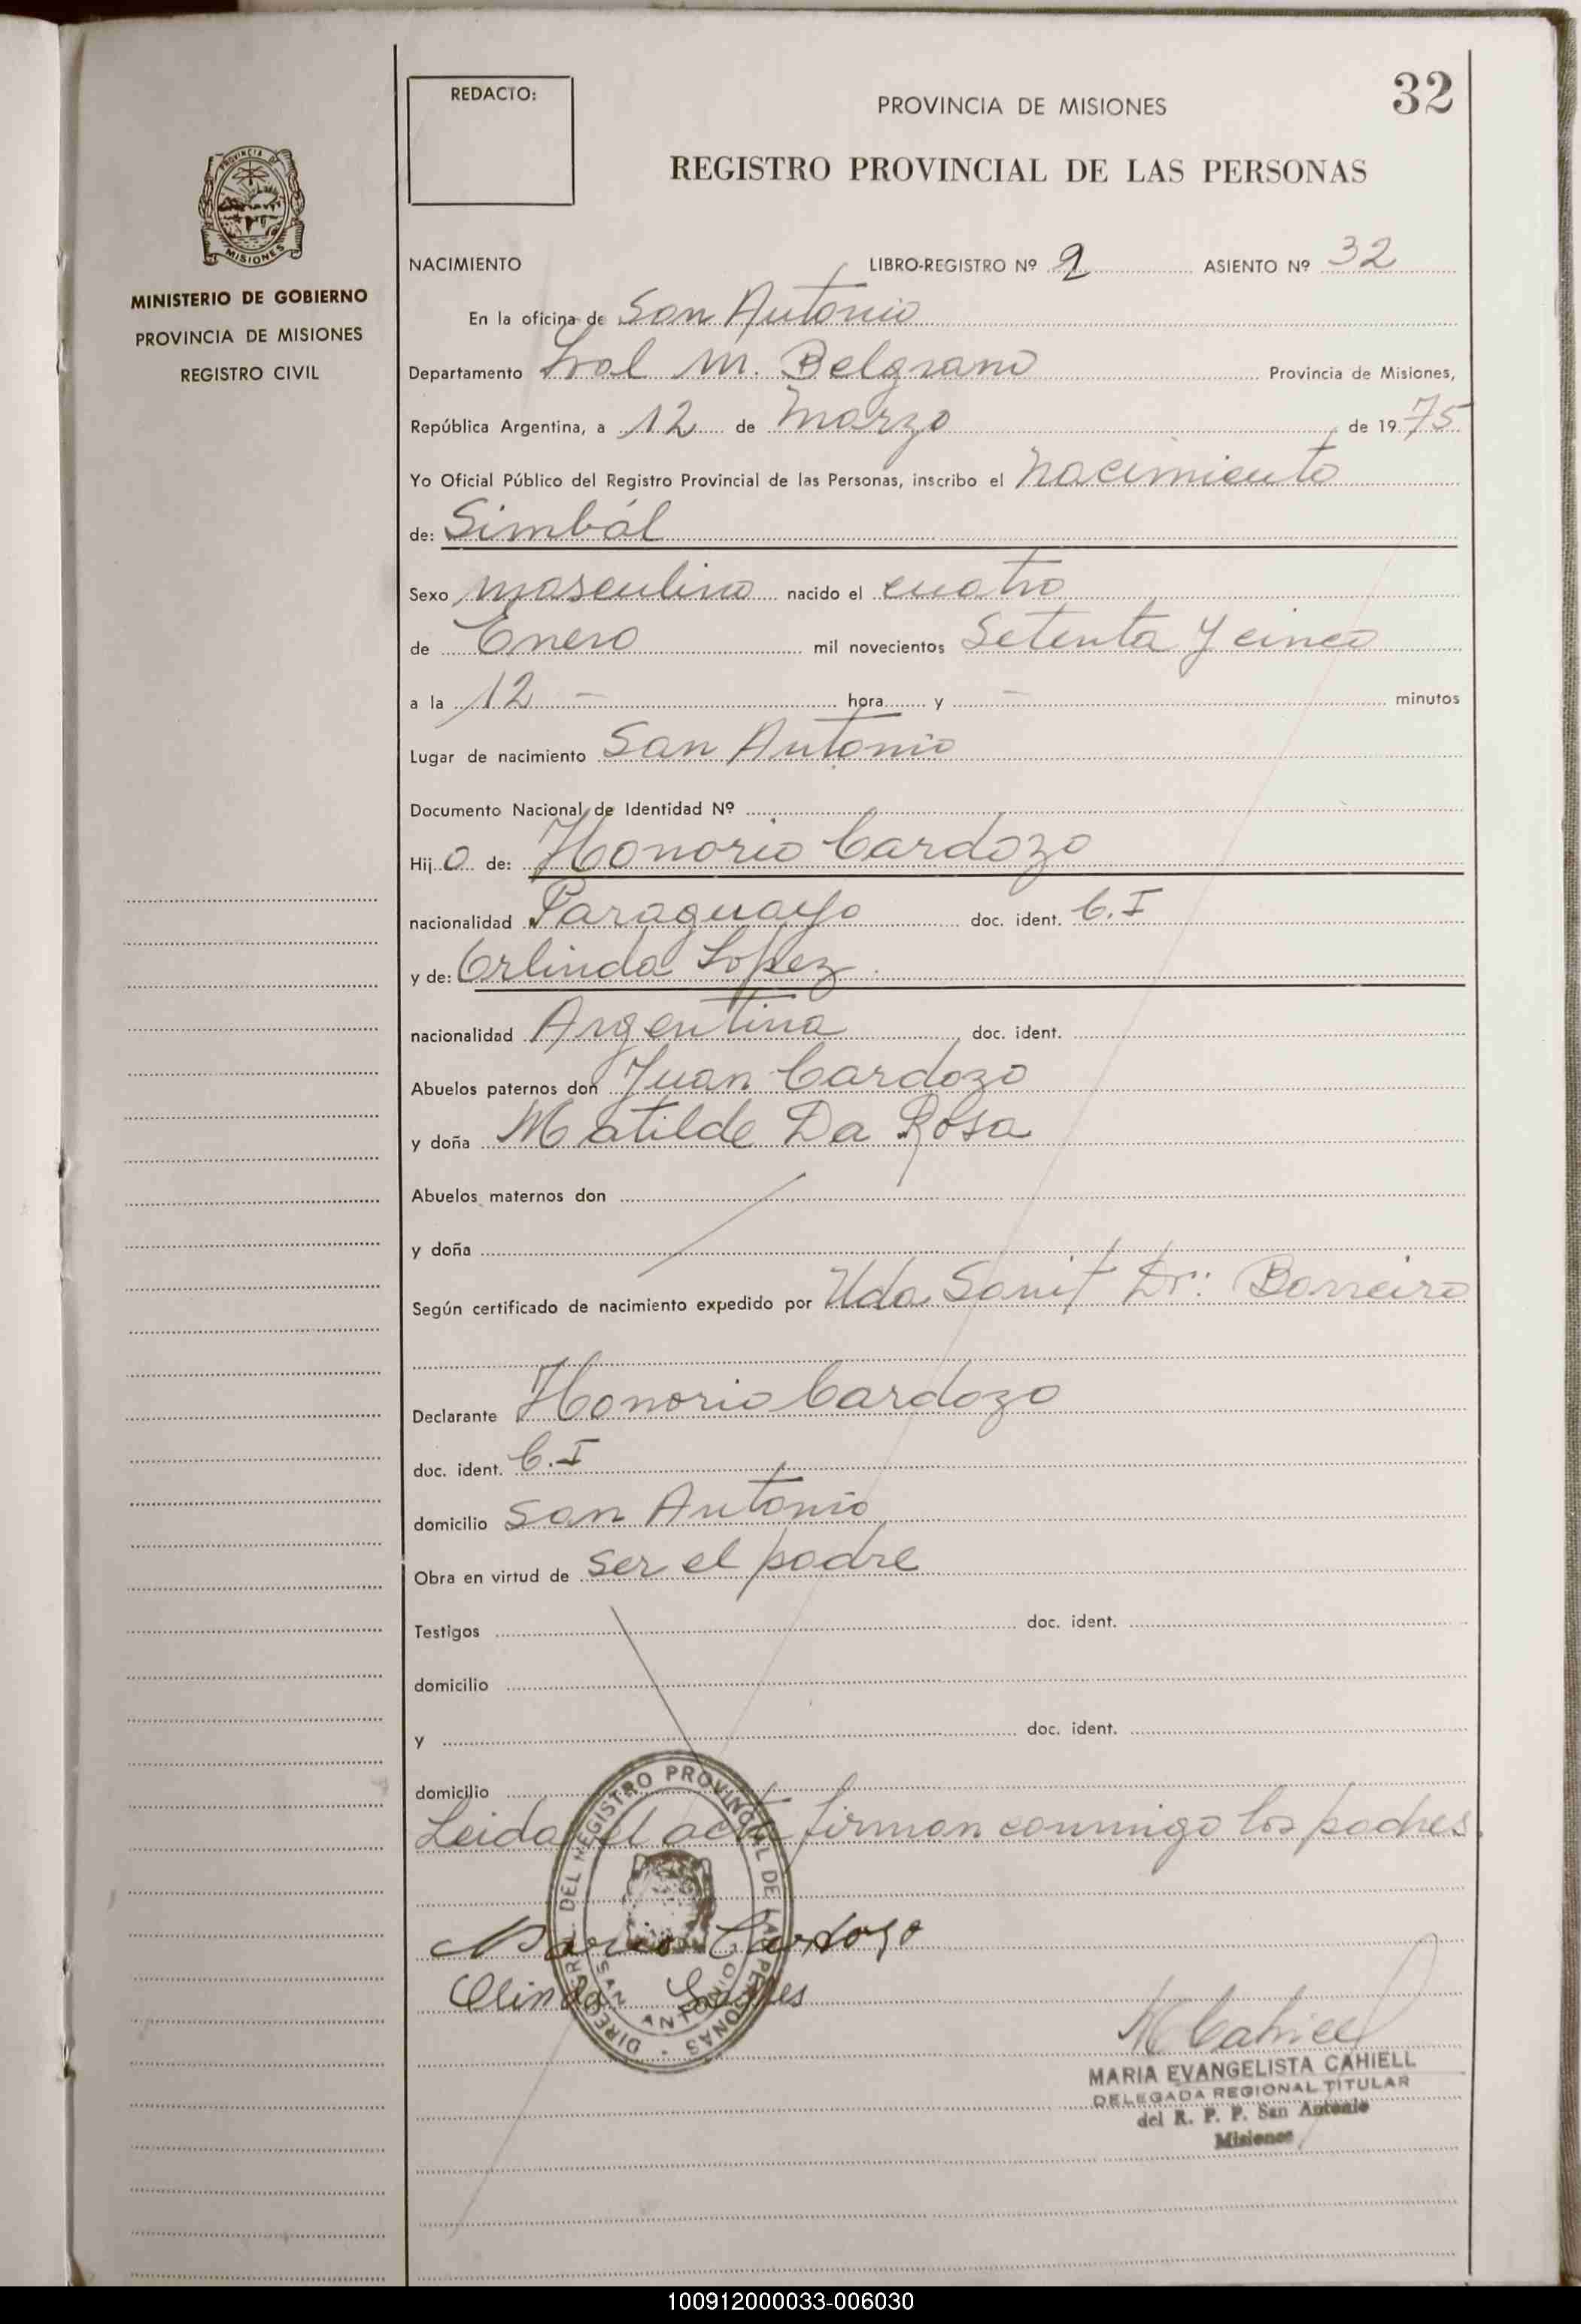 REDACTO:
PROVINCIA DE MISIONES
32
REGISTRO PROVINCIAL DE LAS PERSONAS
PROVINCIA DE
MISIONES
MINISTERIO DE GOBIERNO
PROVINCIA DE MISIONES
REGISTRO CIVIL
NACIMIENTO LIBRO-REGISTRO Nº 2 ASIENTO Nº 32
En la oficina de San Antonio
Departamento Gral M. Belgrano Provincia de Misiones,
República Argentina, a 12 de Marzo de 1975
Yo Oficial Público del Registro Provincial de las Personas, inscribo el Nacimiento
de: Simbál
Sexo masculino nacido el cuatro
de Enero mil novecientos Setenta y cinco
a la 12 - hora y - minutos
Lugar de nacimiento San Antonio
Documento Nacional de Identidad Nº
Hij o de: Honorio Cardozo
nacionalidad Paraguayo doc. ident. C.I
y de: Orlinda Lopez
nacionalidad Argentina doc. ident.
Abuelos paternos don Juan Cardozo
y doña Matilde Da Rosa
Abuelos maternos don
y doña
Según certificado de nacimiento expedido por Uda Sanit Dr: Barreiro
Declarante Honorio Cardozo
doc. ident. C.I
domicilio San Antonio
Obra en virtud de ser el padre
Testigos doc. ident.
domicilio
y doc. ident.
domicilio
Leida el acta firman conmigo los padres.
DIRECC. DEL REGISTRO PROVINCIAL DE LAS PERSONAS
SAN ANTONIO
Cardozo
M Cahiell
MARIA EVANGELISTA CAHIELL
DELEGADA REGIONAL TITULAR
del R. P. P. San Antonio
Misiones
100912000033-006030